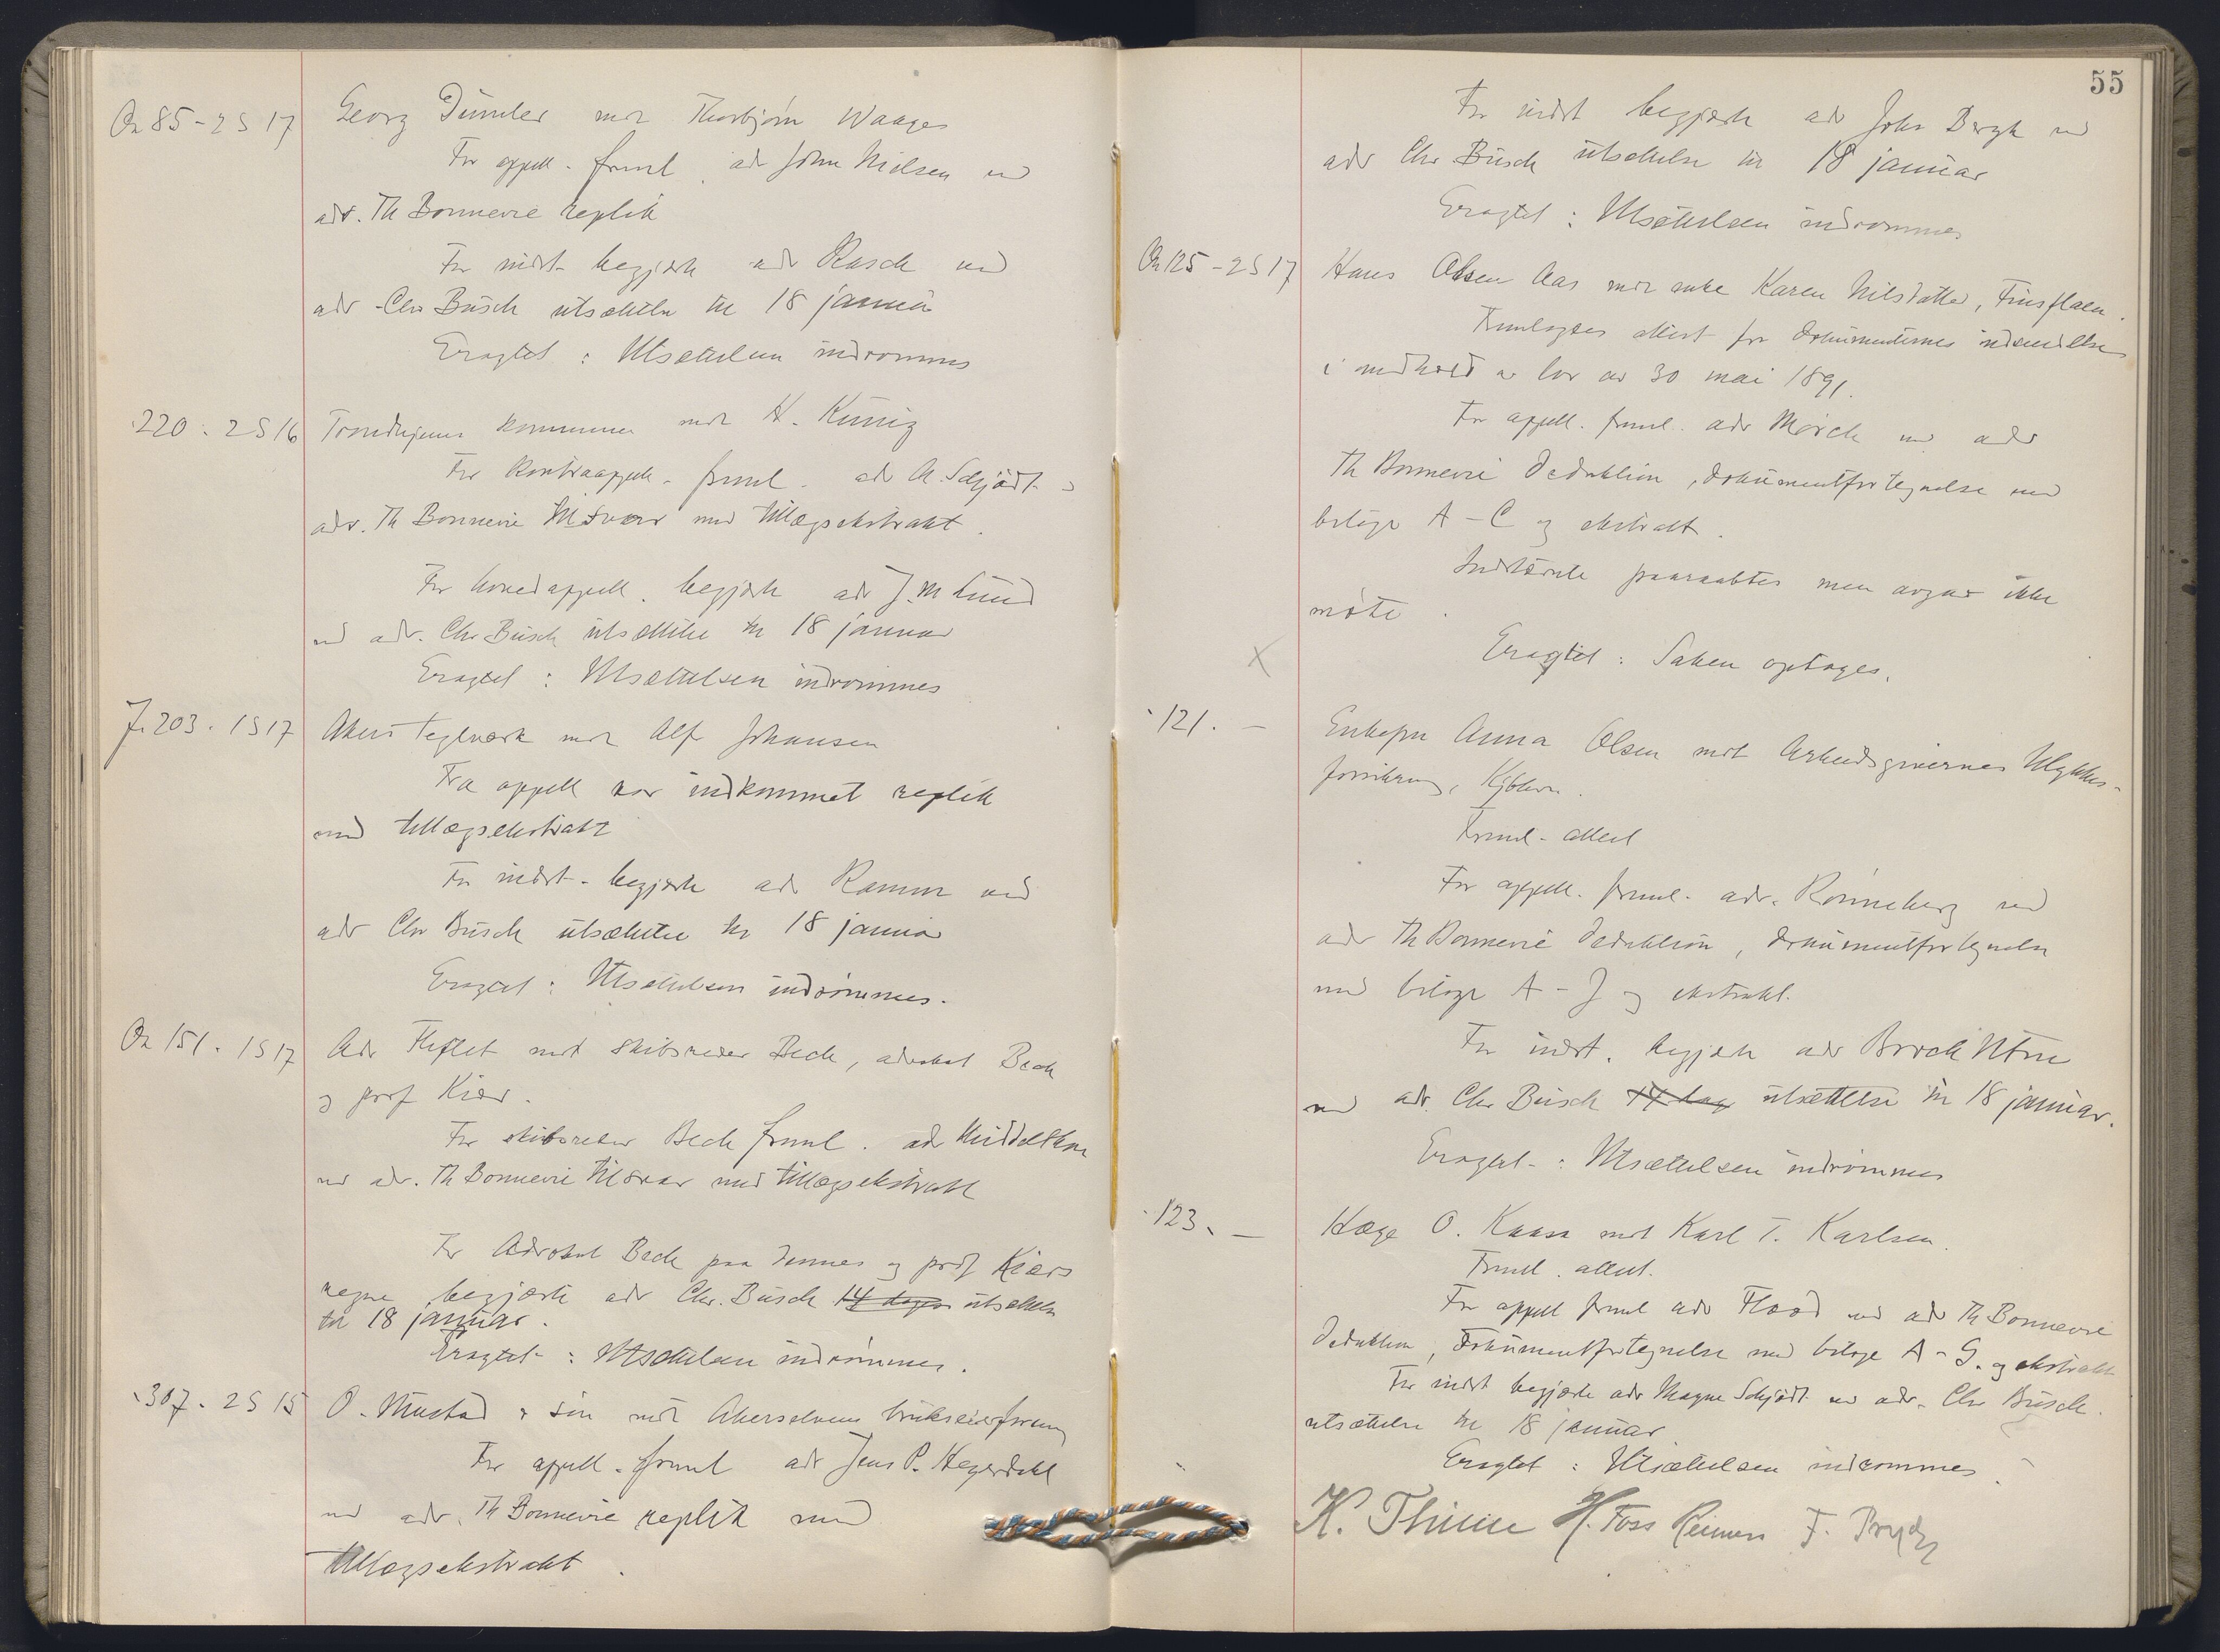 Or 85 - 2 S 17 Georg Dümler mot Thorbjørn Waages
For appell. freml. adv John Nielsen ved
adv. Th Bonnevie replik
For indst. begjærte adv Rasch ved
adv Chr Busch utsættelse til 18 januar
Eragtet : Utsættelsen indrømmes
220. 2 S 16 Trondhjems kommune mot H. Künig
For kontraappell. freml. adv A. Schjødt v
adv. Th Bonnevie tilsvar med tillægsekstrakt.
For hovedappell. begjærte adv J. M. Lund
ved adv. Chr Busch utsættelse til 18 januar
Eragtet : Utsættelsen indrømmes
F. 203. 1 S 17 Akers Teglverk mot Alf Johansen
Fra appell var indkommet replik
med tillægsekstrakt
For indst. begjærte adv Ramm ved
adv Chr Busch utsættelse til 18 januar
Eragtet : Utsættelsen indrømmes.
Or 151. 1 S 17 Adv Heftet mot skibsreder Bech, advokat Bech
og prof Kiær.
For skibsreder Bech freml. adv Middelthon
ved adv. Th Bonnevie tilsvar med tillægsekstrakt
For Advokat Bech paa dennes og prof Kiærs
vegne begjærte adv Chr. Busch 14 dages utsættelse
til 18 januar.
Eragtet : Utsættelsen indrømmes.
307. 2 S 15 O. Mustad & søn mot Akerselvens brukseierforening
For appell. freml adv Jens P. Heyerdahl
ved adv. Th Bonnevie replik med
tillægsekstrakt.
55
For indst begjærte adv John Bergh ved
adv Chr Busch utsættelse til 18 januar
Eragtet : Utsættelsen indrømmes
Or 125 - 2 S 17 Hans Olsen Aas mot enke Karen Nilsdatter, Finsflaen.
Fremlagdes attest for dokumenternes indsendelse
i medhold av lov av 30 mai 1891.
For appell. freml. adv Mørch ved adv
Th Bonnevie deduktion, dokumentfortegnelse med
bilage A - C og ekstrakt.
Indstevnte paaraabtes men avgav ikke
møte.
X Eragtet : Saken optages.
121. — Enkefru Anna Olsen mot Arbeidsgivernes Ulykkes-
forsikring, Kjøbhvn.
Freml. attest
For appell. freml. adv. Rønneberg ved
adv Th Bonnevie deduktion, dokumentfortegnelse
med bilage A - J og ekstrakt.
For indst. begjærte adv Brock Utne
ved adv. Chr Busch 14 dag utsættelse til 18 januar.
Eragtet : Utsættelsen indrømmes
123. — Hæge O. Kaasa mot Karl T. Karlsen.
Freml. attest.
For appell freml adv Flood ved adv Th Bonnevie
deduktion, dokumentfortegnelse med bilage A - G. og ekstrakt
For indst begjærte adv Magne Schjødt ved adv. Chr Busch
utsættelse til 18 januar
Eragtet : Utsættelsen indrømmes.
K. Thinn H. Foss Reimers F. Prydz